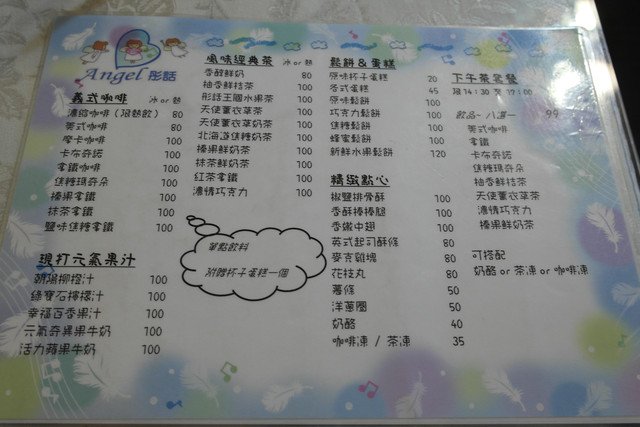 Angel 彤話
義式咖啡 冰or熱
濃縮咖啡(限熱飲) 80
美式咖啡 80
摩卡咖啡 100
卡布奇諾 100
拿鐵咖啡 100
焦糖瑪奇朵 100
榛果拿鐵 100
抹茶拿鐵 100
鹽味焦糖拿鐵 100
現打元氣果汁
朝陽柳橙汁 100
綠寶石檸檬汁 100
幸福百香果汁 100
元氣奇異果牛奶 100
活力蘋果牛奶 100
風味經典茶 冰or熱
香醇鮮奶 80
柚香鮮桔茶 100
彤話王國水果茶 100
天使薰衣草茶 100
天使薰衣草奶茶 100
北海道焦糖奶茶 100
榛果鮮奶茶 100
抹茶鮮奶茶 100
紅茶拿鐵 100
濃情巧克力 100
單點飲料
附贈杯子蛋糕一個
鬆餅&蛋糕
原味杯子蛋糕 20
各式蛋糕 45
原味鬆餅 100
巧克力鬆餅 100
焦糖鬆餅 100
蜂蜜鬆餅 100
新鮮水果鬆餅 120
精緻點心
椒鹽排骨酥 100
香酥棒棒腿 100
香嫩中翅 100
英式起司酥條 80
麥克雞塊 80
花枝丸 80
薯條 50
洋蔥圈 50
奶酪 40
咖啡凍 / 茶凍 35
下午茶套餐
限14:30 至 17:00
飲品~八選一 99
美式咖啡
拿鐵
卡布奇諾
焦糖瑪奇朵
柚香鮮桔茶
天使薰衣草茶
濃情巧克力
榛果鮮奶茶
可搭配
奶酪 or 茶凍 or 咖啡凍